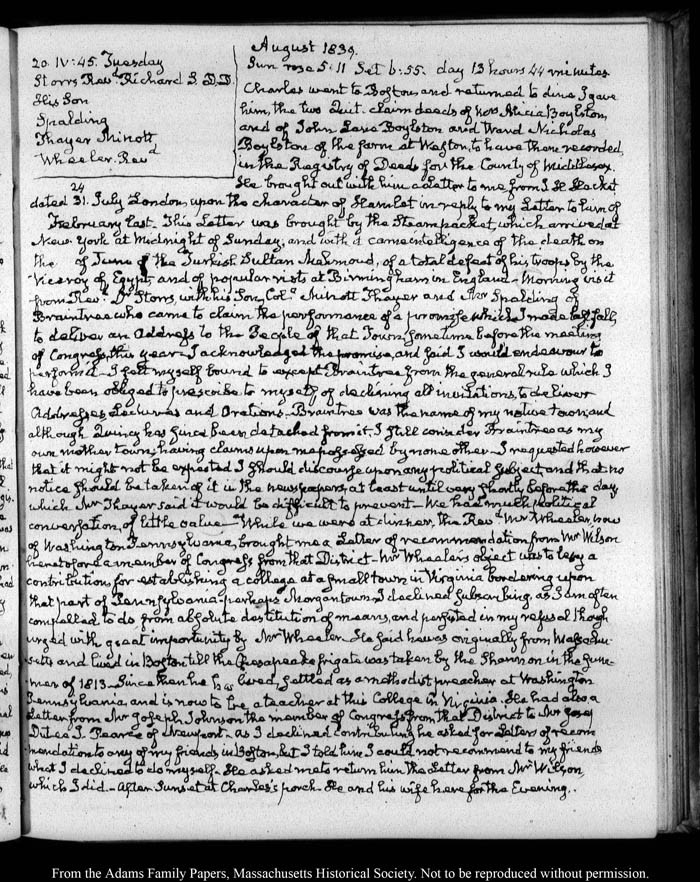 August 1839.
20. IV:45. Tuesday
Storrs Rev.d Richard S. D.D.
His Son
Spalding
Thayer Minott
Wheeler. Rev.d
Sun rose 5:11 Set 6:55. day 13 hours 44 minutes
Charles went to Boston and returned to dine I gave
him, the two Quit-claim deeds of Mrs Alicia Boylston,
and of John Lane Boylston and Ward Nicholas
Boylston of the farm at Weston, to have them recorded,
in the Registry of Deeds for the County of Middlesex.
He brought out with him a Letter to me from J. H. Hackett
24
dated 31. July London, upon the character of Hamlet in reply to my Letter to him of
February last. This Letter was brought by the Steampacket, which arrived at
New York at Midnight of Sunday, and with it came intelligence of the death on
the of June of the Turkish Sultan Mahmoud, of a total defeat of his troops by the
Viceroy of Egypt, and of popular riots at Birmingham in England. Morning visit
from Rev.d Dr Storrs, with his Son, Col.l Minott Thayer and Mr Spalding of
Braintree who came to claim the performance of a promise which I made last fall,
to deliver an Address to the People of that Town, sometime before the meeting
of Congress this year. I acknowledged the promise, and said I would endeavour to
perform it. I felt myself bound to except Braintree from the general rule which I
have been obliged to prescribe to myself, of declining all invitations, to deliver
Addresses Lectures and Orations. Braintree was the name of my native town, and
although Quincy has since been detached from it, I still consider Braintree as my
own mother town, having claims upon me possessed by none other. I requested however
that it might not be expected I should discourse upon any political subject, and that no
notice should be taken of it in the newspapers, at least until very shortly before the day
which Mr Thayer said it would be difficult to prevent. We had much political
conversation, of little value. While we were at dinner, the Rev.d Mr Wheeler, now
of Washington Pennsylvania, brought me a Letter of recommendation, from Mr Wilson
heretofore a member of Congress from that District. Mr Wheeler's object was to levy a
contributions for establishing a college at a small town in Virginia bordering upon
that part of Pennsylvania. perhaps Morgantown. I declined subscribing, as I am often
compelled to do, from absolute destitution of means, and persisted in my refusal though
urged with great importunity by Mr Wheeler. He said he was originally from Massachu-
setts and lived in Boston till the Chesapeake frigate was taken by the Shannon in the Sum-
mer of 1813. Since then he has lived, settled as a methodist preacher at Washington
Pennsylvania, and is now to be a teacher at this College in Virginia. He had also a
Letter from Mr Joseph Johnson the member of Congress from that District to Mr
Dutee J. Pearce of Newport. as I declined contributing he asked for Letters of recom
mendation to any of my friends in Boston, but I told him I could not recommend to my friends
what I declined to do myself. He asked me to return him the Letter from Mr Wilson,
which I did. After Sunset at Charles's porch. He and his wife here for the Evening.
From the Adams Family Papers, Massachusetts Historical Society. Not to be reproduced without permission.